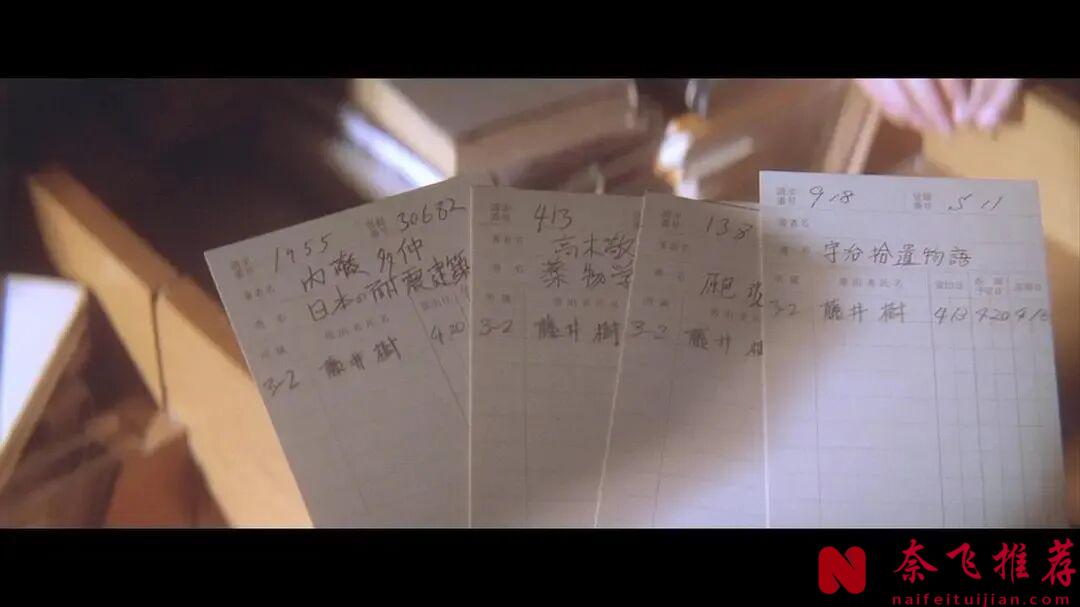 請求番号 1955 登録番号 30682
著者名 内藤 多仲
書名 日本の耐震建築
所属 貸出者氏名 貸出日
3-2 藤井 樹 4 20
請求番号 413
著者名 高木敬
書名 薬物学
所属 貸出者氏名
3-2 藤井 樹
請求番号 138
著者名
書名
所属 貸出者氏
3-2 藤井 樹
請求番号 918 登録番号 511
著者名
書名 宇治拾遺物語
所属 貸出者氏名 貸出日 返却予定日 返却日
3-2 藤井 樹 413 420 418
N 奈飞推荐
naifeituijian.com